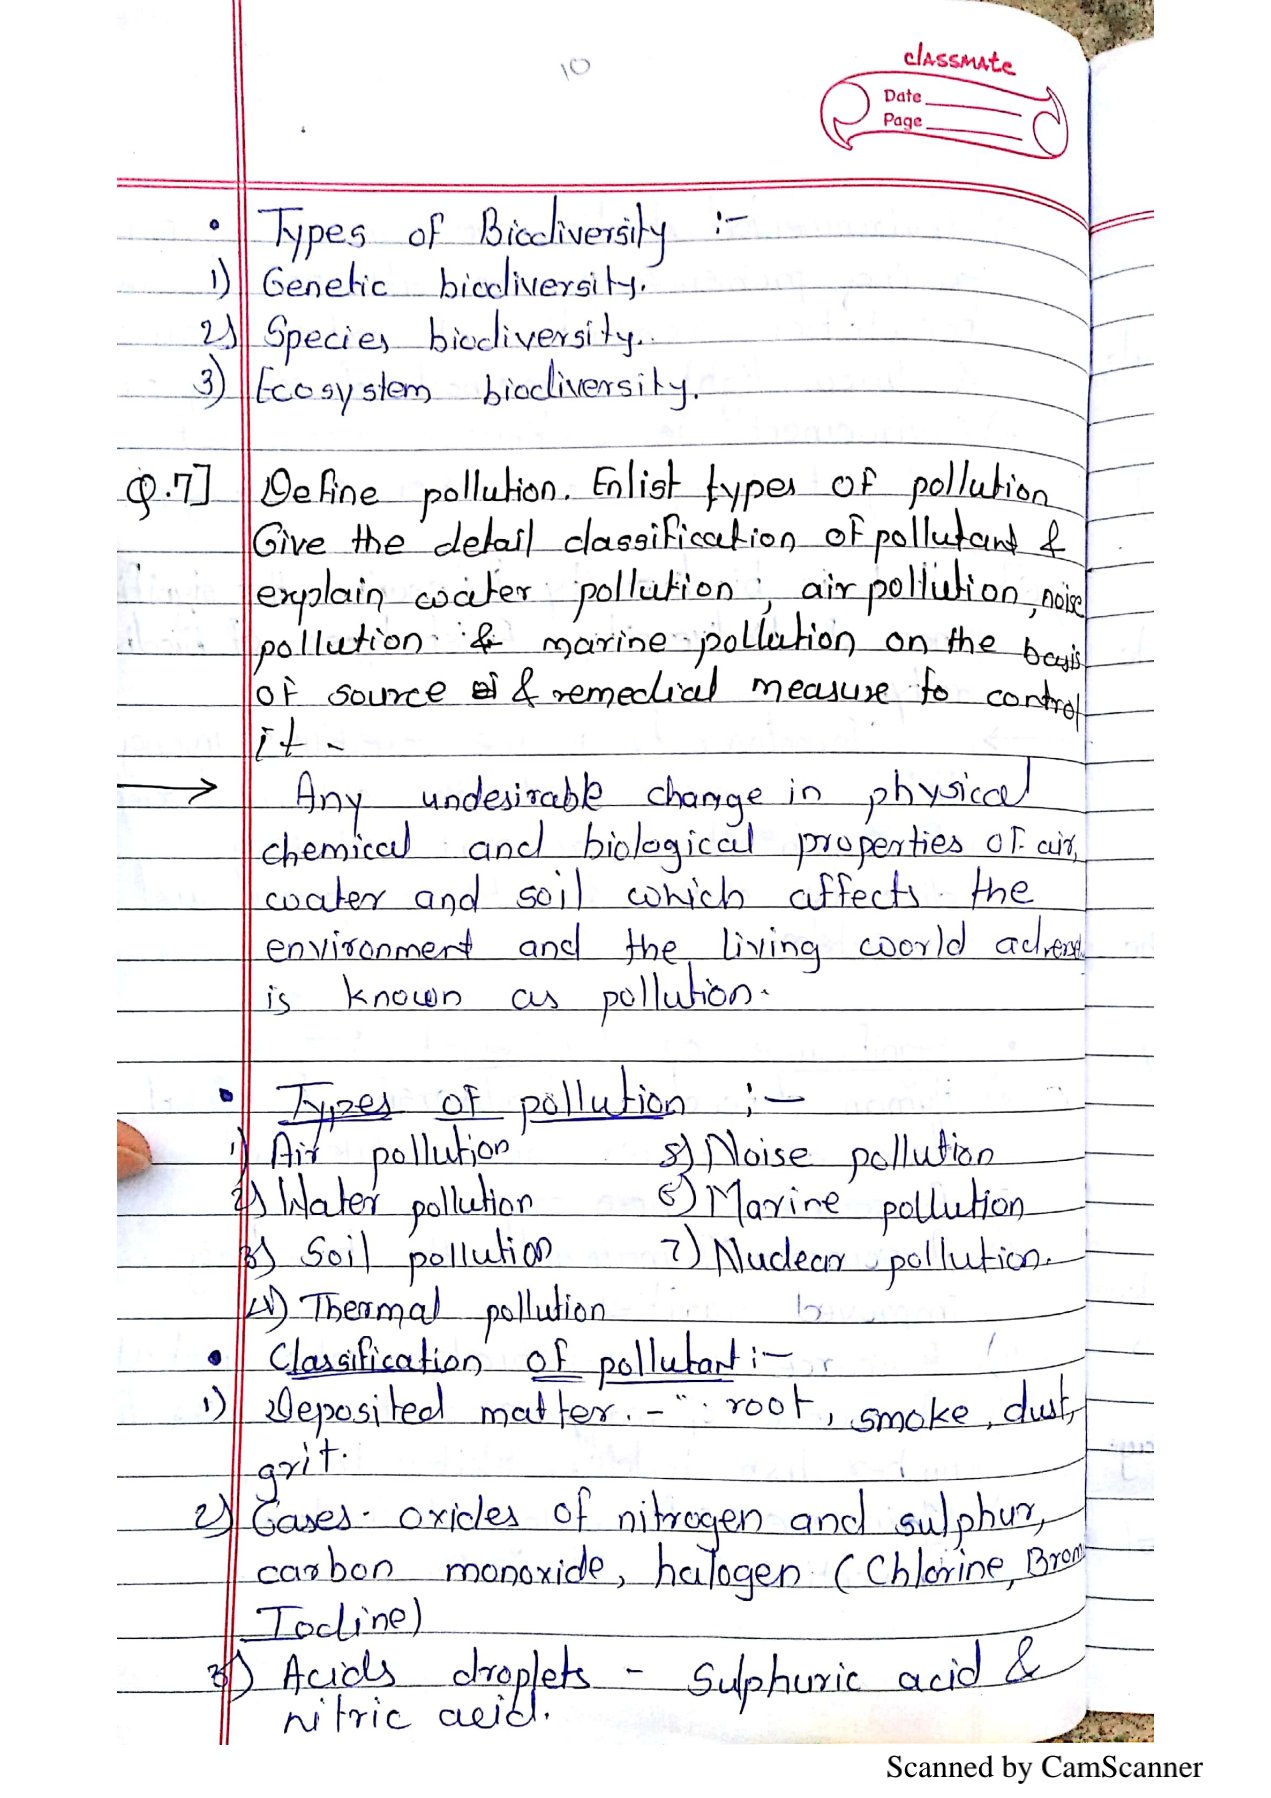 10
classmate
Date
Page
• Types of Biodiversity :-
1) Genetic biodiversity.
2) Species biodiversity.
3) Ecosystem biodiversity.
Q.7] Define pollution. Enlist types of pollution
Give the detail classification of pollutant &
explain water pollution, air pollution, noise
pollution & marine pollution on the basis
of source & remedial measure to control
it -
→ Any undesirable change in physical
chemical and biological properties of air,
water and soil which affects the
environment and the living world
is known as pollution.
• Types of pollution :-
1) Air pollution 5) Noise pollution
2) Water pollution 6) Marine pollution
3) Soil pollution 7) Nuclear pollution.
4) Thermal pollution
• Classification of pollutant :-
1) Deposited matter. - root, smoke, dust,
grit.
2) Gases. oxides of nitrogen and sulphur,
carbon monoxide, halogen (Chlorine, Brom
Iodine)
3) Acids droplets - Sulphuric acid &
nitric acid.
Scanned by CamScanner